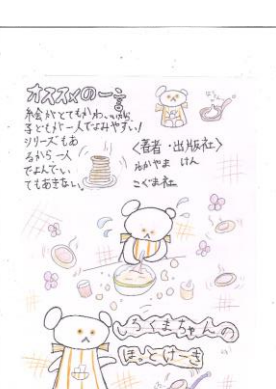 オススメの一言
絵がとてもかわいいから
子どもが一人でよみやすい！
シリーズもあ
るから一人
でよんでい
てもあきない。
〈著者・出版社〉
わかやま けん
こぐま社
しろくまちゃんの
ほっとけーき